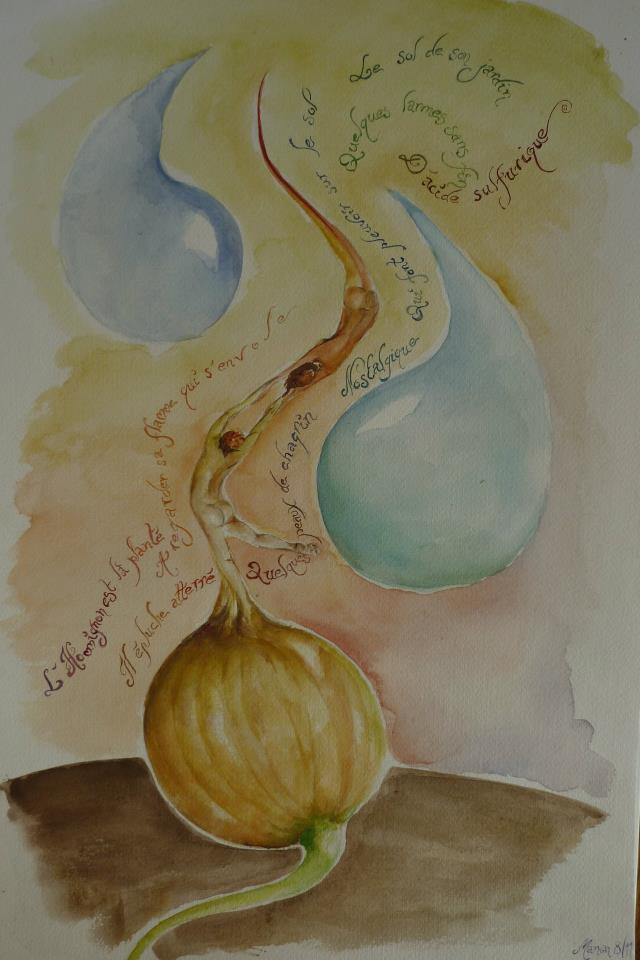 L'Hommignon est là planté
A regarder sa flamme qui s'envole
Il épluche atterré
Quelques peaux de chagrin
Nostalgique
Qui font pleuvoir sur le sol
Le sol de son jardin
Quelques larmes sans fin
D'acide sulfurique